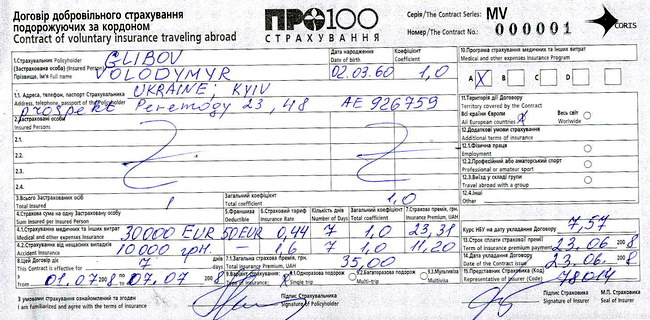 Договір добровільного страхування
подорожуючих за кордоном
Contract of voluntary insurance traveling abroad
ПРО100
СТРАХУВАННЯ
Серія/The Contract Series: MV
Номер/The Contract No.: 000001
CORIS
1.Страхувальник Policyholder
(Застрахована особа) (Insured Person)
Прізвище, ім'я Full name
GLIBOV
VOLODYMYR
Дата народження
Date of birth
02.03.60
Коефіцієнт
Coefficient
1,0
10.Програма страхування медичних та інших витрат
Medical and other expenses Insurance Program
A X B C D E
1.1. Адреса, телефон, паспорт Страхувальника
Address, telephone, passport of the Policyholder
UKRAINE, KYIV
prospekt Peremogy 23, 48 AE 926759
11.Територія дії Договору
Territory covered by the Contract
Всі країни Європи X Весь світ
All European countries Worlwide
2.Застраховані особи
Insured Persons
2.1.
2.2.
2.3.
2.4.
12.Додаткові умови страхування
Additional terms of insurance
12.1.Фізична праця
Employment
12.2.Професійний або аматорський спорт
Professional or amateur sport
12.3.Виїзд у складі групи
Travel abroad with a group
12.4.Інші
Other
3.Всього Застрахованих осіб
Total Insured
1
Загальний коефіцієнт
Total coefficient
1,0
4.Страхова сума на одну Застраховану особу
Sum Insured per Insured Person
5.Франшиза
Deductible
6.Страховий тариф
Insurance Rate
Кількість днів
Number of Days
Загальний коеф.
Total coefficient
7.Страхова премія, грн.
Insurance Premium, UAH
4.1.Страхування медичних та інших витрат
Medical and other expenses Insurance
30000 EUR 50 EUR 0,44 7 1,0 23,31
4.2.Страхування від нещасних випадків
Accident Insurance
10000 грн — 1,6 7 1,0 11,20
Курс НБУ на дату укладання Договору
7,57
13.Строк сплати страхової премії
Terms of insurance premium payment
23.06 2008
8.Цей Договір діє
This Contract is effective for
7 днів
days
З From 01.07 2008 по to 07.07 2008
7.1.Загальна страхова премія, грн.
Total Insurance Premium, UAH
35,00
14.Дата укладання Договору
Date of the Contract issue
23.06 2008
9.Варіант страхування:
Type of insurance:
X 9.1.Однократна подорож
Single trip
9.2.Багаторазова подорож
Multi-trip
9.3.Мультивіза
Multivisa
15.Представник Страховика (Код)
Representative of Insurer (Code)
78014
З умовами страхування ознайомлений та згоден
I am familiarized and agree with the terms of insurance
Підпис Страхувальника
Signature of Policyholder
Підпис Страховика
Signature of Insurer
М.П. Страховика
Seal of Insurer